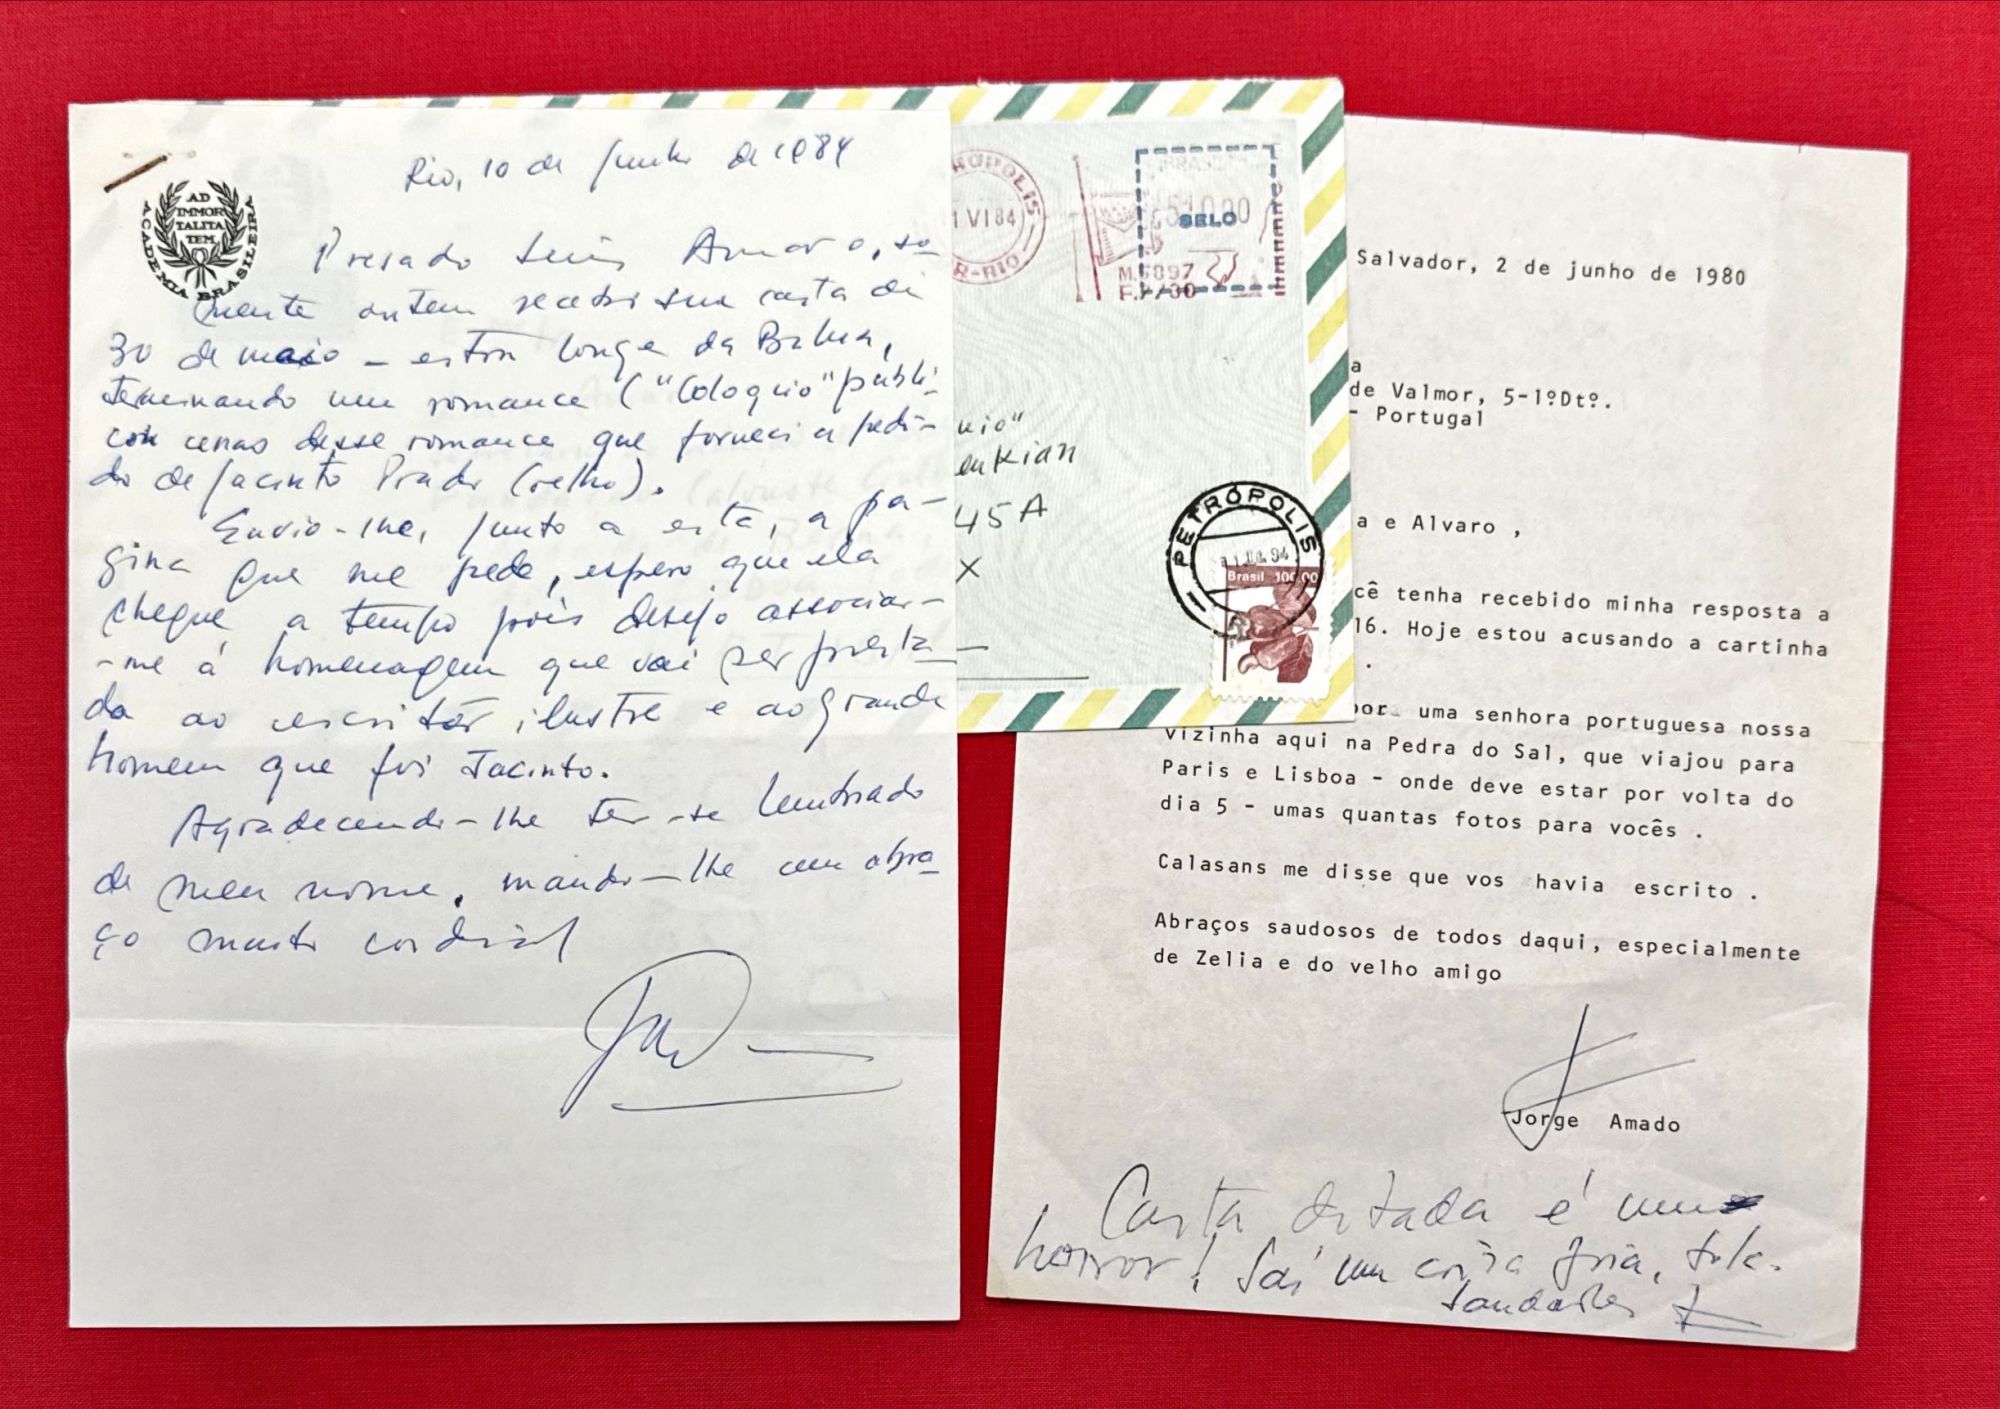 ACADEMIA BRASILEIRA
AD
IMMOR
TALITA
TEM
Rio, 10 de junho de 1984
Presado Luis Amaro, so-
mente ontem recebi sua carta de
30 de maio – estou longe da Bahia,
terminando um romance ("Coloquio" publi-
cou cenas desse romance que forneci a pedi-
do de Jacinto Prado Coelho).
Envio-lhe, junto a esta, a pa-
gina que me pede, espero que ela
chegue a tempo pois desejo associar-
-me á homenagem que vai ser presta-
da ao escritor ilustre e ao grande
homem que foi Jacinto.
Agradecendo-lhe ter-se lembrado
de meu nome, mando-lhe um abra-
ço muito cordial
RÓPOLIS
1 VI 84
R-RIO
BRASIL
SELO
M.5097
F.7730
nio"
enkian
45A
X
PETRÓPOLIS
Brasil 100,00
Salvador, 2 de junho de 1980
a
de Valmor, 5-1ºDtº.
- Portugal
a e Alvaro ,
cê tenha recebido minha resposta a
16. Hoje estou acusando a cartinha
.
por uma senhora portuguesa nossa
vizinha aqui na Pedra do Sal, que viajou para
Paris e Lisboa - onde deve estar por volta do
dia 5 - umas quantas fotos para vocês .
Calasans me disse que vos havia escrito .
Abraços saudosos de todos daqui, especialmente
de Zelia e do velho amigo
Jorge Amado
Carta ditada é um
horror! Sai uma coisa fria, tola.
Saudades